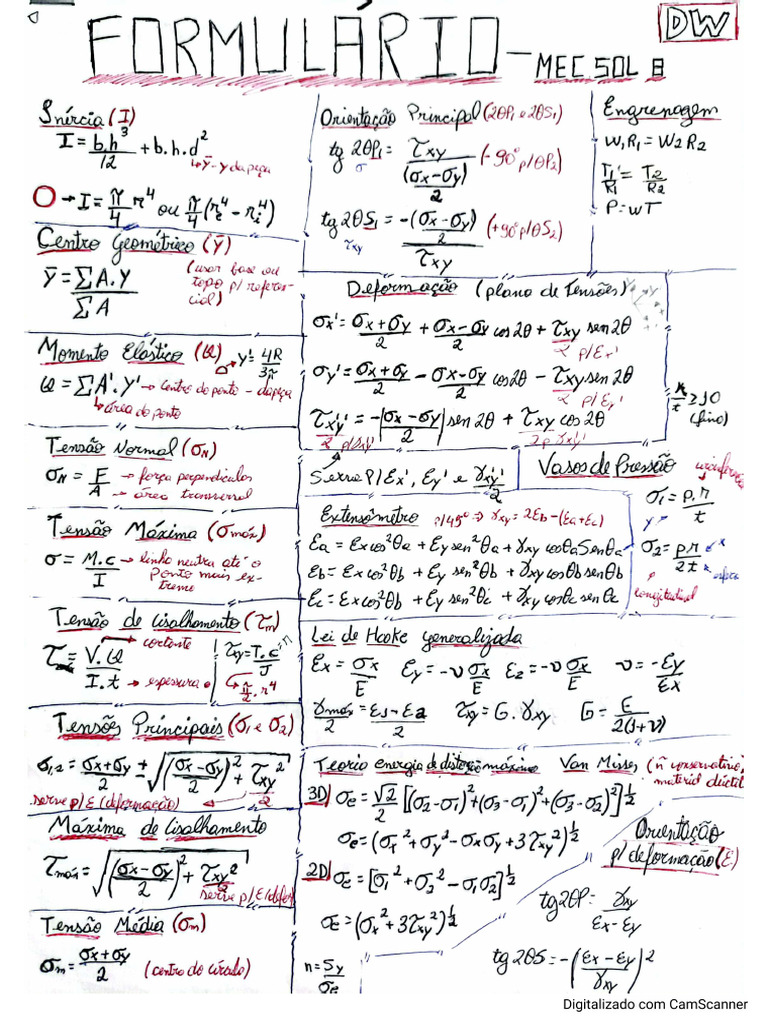 FORMULÁRIO - MEC SOL B
DW
Inércia (I)
I = b.h³/12 + b.h.d²
↳ ȳ - y da peça
O → I = π/4 r⁴ ou π/4 (re⁴ - ri⁴)
Centro Geométrico (ȳ)
ȳ = ΣA.Y/ΣA
(usar base ou topo p/ referencial)
Momento Elástico (Q)
y' = 4R/3π
Q = ΣA'.Y' → centro do ponto - da peça
↳ área do ponto
Tensão Normal (σN)
σN = F/A → força perpendiculos
→ área transversal
Tensão Máxima (σmáx)
σ = M.c/I → linha neutra até o ponto mais extremo
Tensão de Cisalhamento (τm)
τ = V.Q/I.t → cortante
→ espessura
τxy = T.c/J → r
↳ π/2 . r⁴
Tensões Principais (σ1 e σ2)
σ1,2 = σx+σy/2 ± √((σx-σy/2)² + τxy²)
serve p/ε (deformação) ← 2
Máxima de Cisalhamento
τmáx = √((σx-σy/2)² + τxy²)
2 serve p/ε (defor)
Tensão Média (σm)
σm = σx+σy/2 (centro do círculo)
Orientação Principal (2θP1 e 2θS1)
tg 2θP1 = τxy/((σx-σy)/2) (-90° p/θP2)
σ
tg 2θS1 = -(σx-σy)/2/τxy (+90° p/θS2)
τxy
Engrenagem
W1R1 = W2R2
T1/R1 = T2/R2
P = wT
Deformação (plano de Tensões)
σx' = σx+σy/2 + σx-σy/2 cos2θ + τxy sen2θ
2 p/εx'
σy' = σx+σy/2 - σx-σy/2 cos2θ - τxy sen2θ
2 p/εy'
τx'y' = -|σx-σy/2| sen2θ + τxy cos2θ
2 p/γxy'
2 p γxy'
r/t ≥ 10 (fino)
Serve P/εx', εy' e γxy'/2
Vasos de Pressão
σ1 = p.r/t
y
σ2 = p.r/2t
x
esfera
longitudinal
Extensômetro p/45° ⇒ γxy = 2εb - (εa+εc)
εa = εx cos²θa + εy sen²θa + γxy cosθa senθa
εb = εx cos²θb + εy sen²θb + γxy cosθb senθb
εc = εx cos²θc + εy sen²θc + γxy cosθc senθc
Lei de Hooke generalizada
εx = σx/E εy = -ν σx/E εz = -ν σx/E ν = -εy/εx
τxy = G.γxy G = E/2(1+ν)
Teoria energia de distorção máxima Van Misses (ñ conservativo) material dúctil
3D) σe = √2/2 [(σ2-σ1)² + (σ3-σ1)² + (σ3-σ2)²]^1/2
σe = (σx² + σy² - σxσy + 3τxy²)^1/2
2D) σe = [σ1² + σ2² - σ1σ2]^1/2
σe = (σx² + 3τxy²)^1/2
n = Sy/σe
Orientação p/ deformação (ε)
tg2θP = γxy/εx-εy
tg2θS = -(εx-εy/γxy)²
Digitalizado com CamScanner